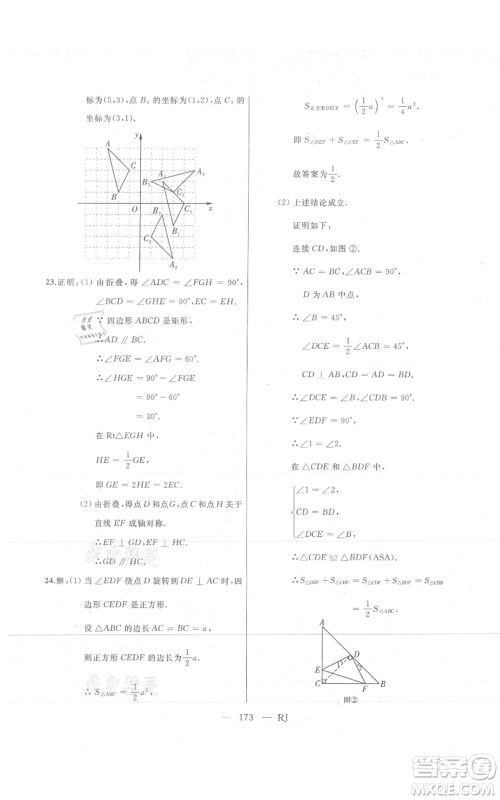 标为(5,3)，点 B₂ 的坐标为(1,2)，点 C₂ 的
坐标为(3,1).
y
A
C
B
B₁
A₁
C₂
O
x
C₁
A₂
23.证明：(1) 由折叠，得 ∠ADC = ∠FGH = 90°，
∠BCD = ∠GHE = 90°，EC = EH.
∵ 四边形 ABCD 是矩形，
∴AD ∥ BC.
∴∠FGE = ∠AFG = 60°.
∴∠HGE = 90° − ∠FGE
= 90° − 60°
= 30°.
在 Rt△EGH 中，
HE = 1/2 GE，
即 GE = 2HE = 2EC.
(2) 由折叠，得点 D 和点 G，点 C 和点 H 关于
直线 EF 成轴对称.
∴EF ⊥ GD，EF ⊥ HC.
∴GD ∥ HC.
24.解：(1) 当 ∠EDF 绕点 D 旋转到 DE ⊥ AC 时，四
边形 CEDF 是正方形.
设 △ABC 的边长 AC = BC = a，
则正方形 CEDF 的边长为 1/2 a.
∴S△ABC = 1/2 a²，
S正方形DECF = (1/2 a)² = 1/4 a².
即 S△DEF + S△CEF = 1/2 S△ABC.
故答案为 1/2.
(2) 上述结论成立.
证明如下：
连接 CD，如图 ②.
∵ AC = BC，∠ACB = 90°，
D 为 AB 中点，
∴∠B = 45°，
∠DCE = 1/2 ∠ACB = 45°，
CD ⊥ AB，CD = 1/2 AB = BD.
∴∠DCE = ∠B，∠CDB = 90°.
∵∠EDF = 90°，
∴∠1 = ∠2.
在 △CDE 和 △BDF 中，
∠1 = ∠2，
CD = BD，
∠DCE = ∠B，
∴△CDE ≌ △BDF(ASA).
∴S△DEF + S△CEF = S△ADE + S△BDF
= 1/2 S△ABC.
A
D
E
1
2
C
F
B
图②
— 173 — RJ
作业精灵
作业精灵
答案圈
MXQE.COM